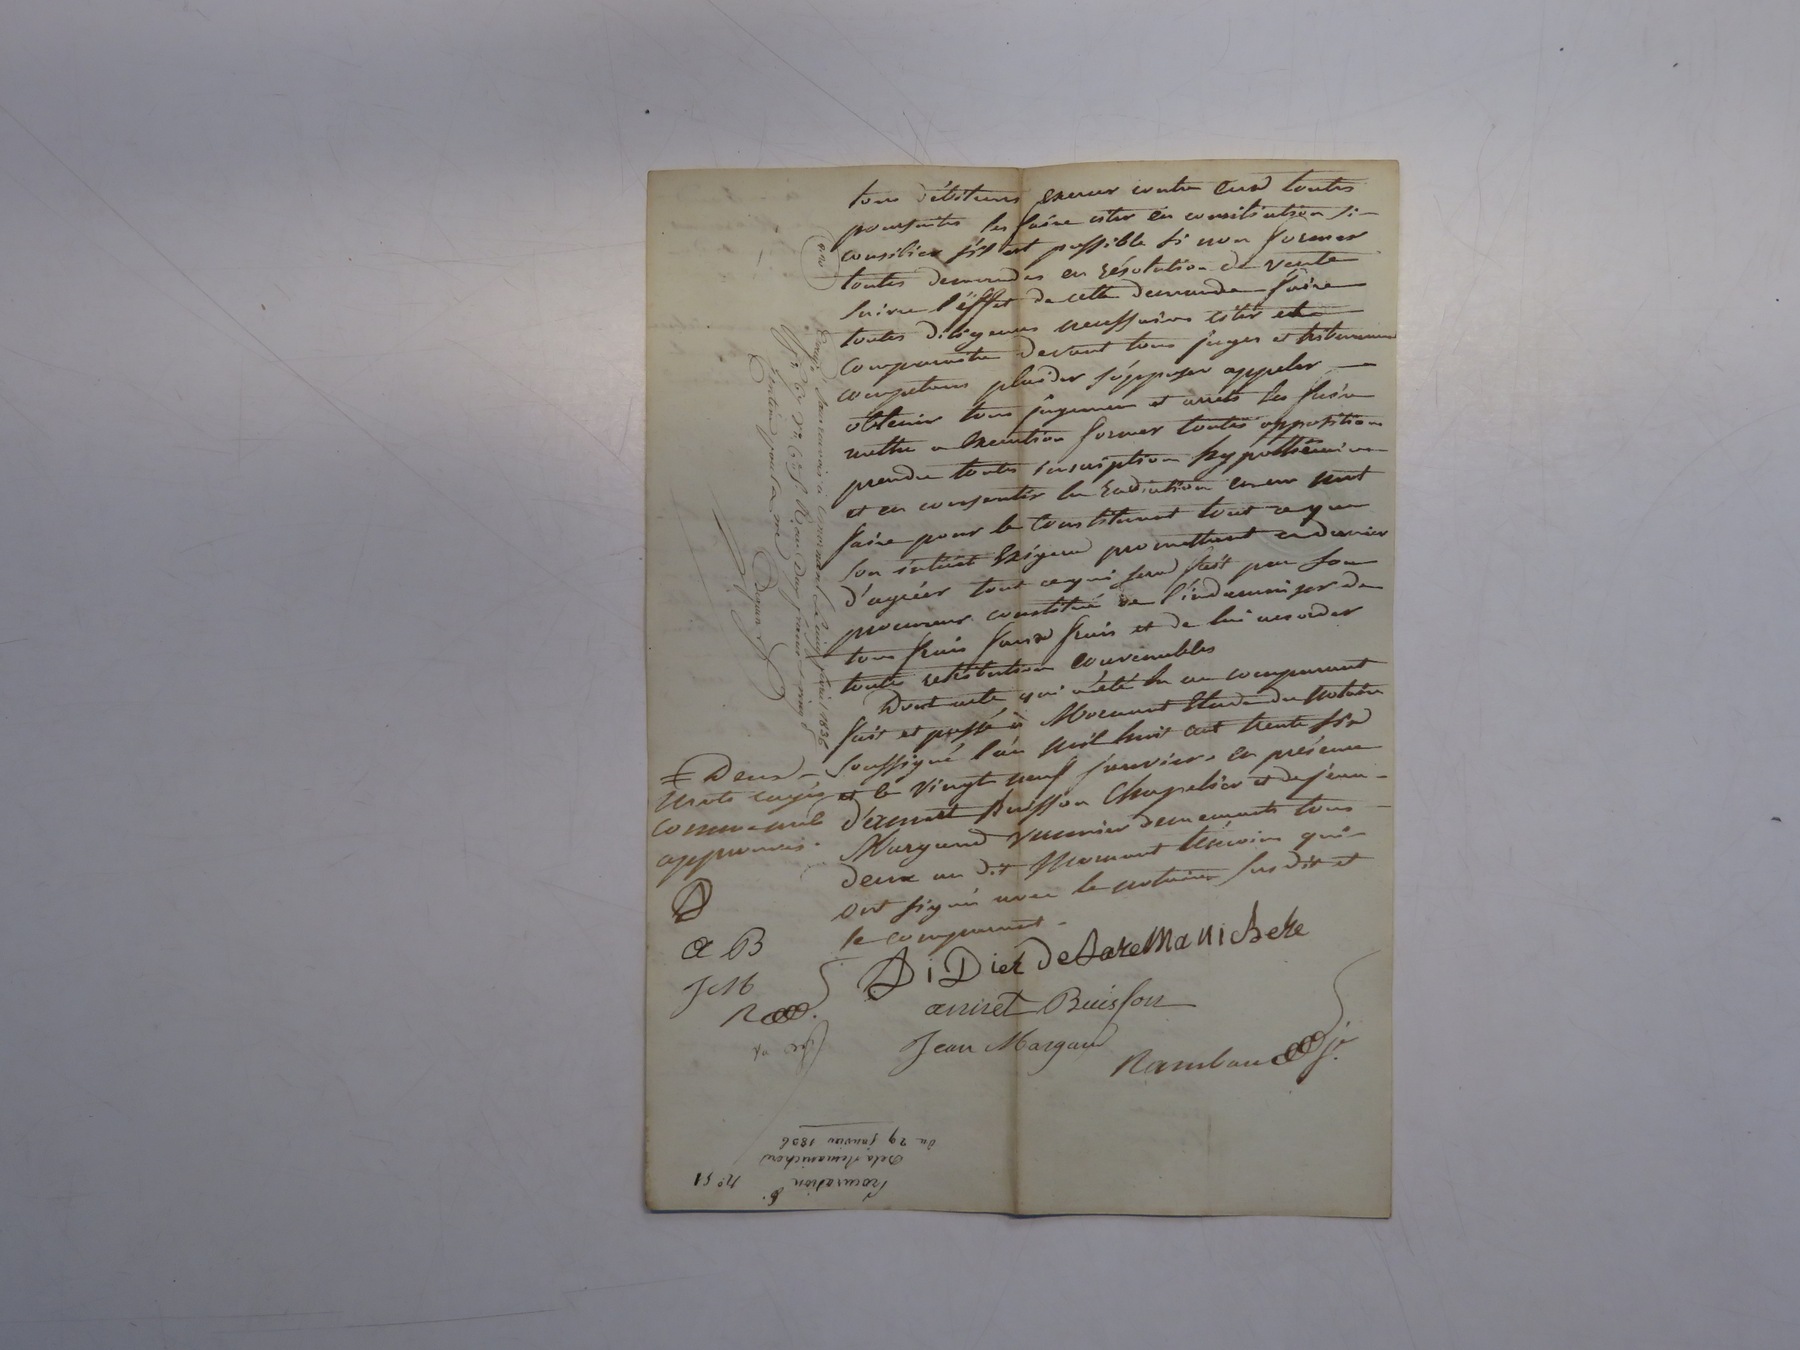 tous débiteurs exercer contre eux toutes
poursuites les faire citer en consiliation si
consilier s'il est possible si non former
toutes demandes en résolution de vente
suivre l'éffet de cette demande faire
toutes diligences necessaires citer et
comparaitre devant tous juges et tribunaux
competens plaider s'opposer appeler
obtenir tous jugemens et arrêts les faire
mettre a execution former toutes oppositions
prendre toutes inscription hypothécaires
et en consentir la radiation enun mot
faire pour le constituant tout ce que
son intérêt exigera promettant ce dernier
d'agréer tout cequi sera fait par son
procureur constitué de l'indemniser de
tous frais faux frais et de lui accorder
toutes retribution convenables
Dont acte qui a été lu au comparant
fait et passé à Mornant Etude du Notaire
soussigné l'an mil huit cent trente six
et le vingt neuf janvier en présence
d'annet Buisson Chapelier et de jean
Margand demeurants tous
deux au dit Mornant témoins qui
ont signé avec le notaire susdit et
le comparant
Deux
mots rayés
approuvés
D
a B
J M
R
DiDier DeLaremanichere
annet Buisson
Jean Margand
Rambau je
janvier 1836
Procuration
Dela remanichere
du 29 janvier 1836
N° 51